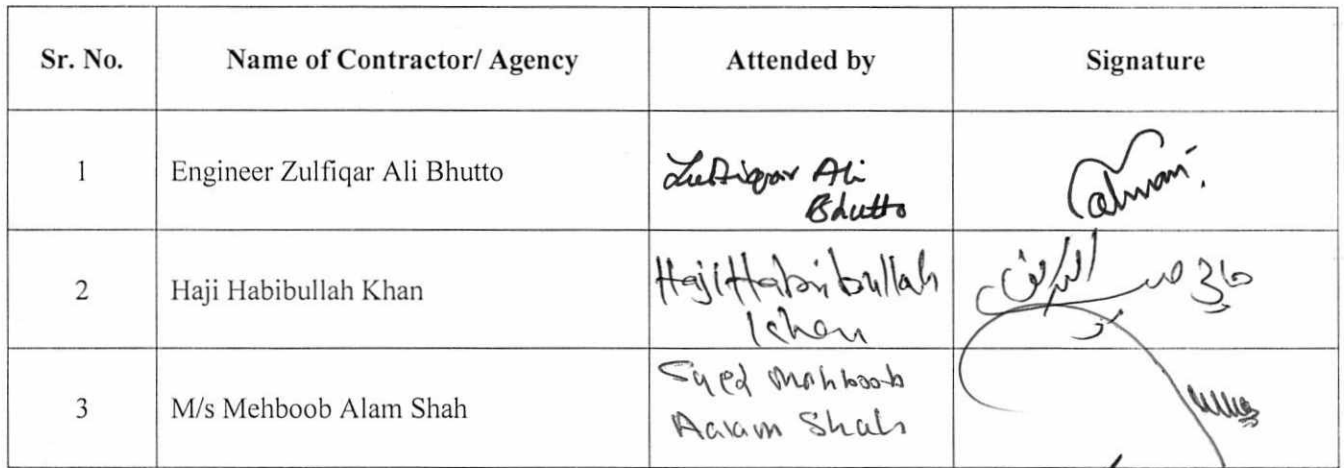 Sr. No. Name of Contractor/ Agency Attended by Signature
1 Engineer Zulfiqar Ali Bhutto Zulfiqar Ali
Bhutto
2 Haji Habibullah Khan Haji Habibullah
Khan
3 M/s Mehboob Alam Shah Syed Mahboob
Aalam Shah